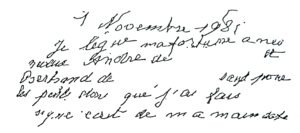 1 Novembre 1981
Je lègue ma fortune a mes
neveux de et
Bertrand de sauf pour
les petits dons que j'ai fais
signe ecrit de ma main